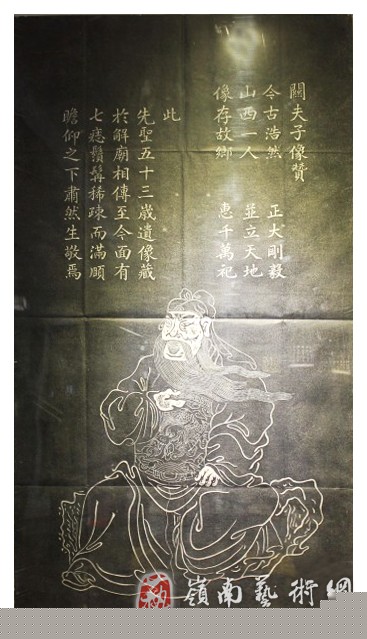 關夫子像贊
今古浩然 正大剛毅
山西一人 並立天地
像存故鄉 惠千萬祀
此
先聖五十三歲遺像藏
於解廟相傳至今面有
七痣鬚髯稀疎而滿頤
瞻仰之下肅然生敬焉
嶺南藝術網